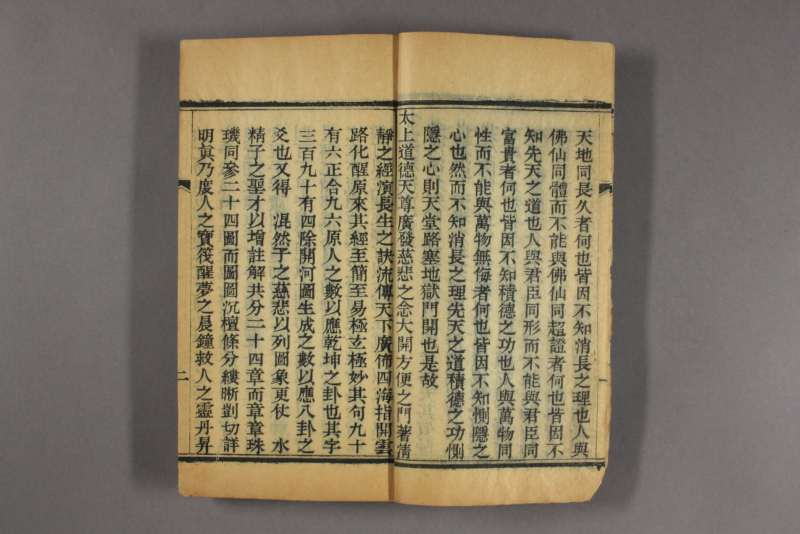 天地同長久者何也皆因不知消長之理也人與
佛仙同體而不能與佛仙同超證者何也皆因不
知先天之道也人與君臣同形而不能與君臣同
富貴者何也皆因不知積德之功也人與萬物同
性而不能與萬物無侮者何也皆因不知惻隱之
心也然而不知消長之理先天之道積德之功惻
隱之心則天堂路塞地獄門開也是故
太上道德天尊廣發慈悲之念大開方便之門著淸
靜之經演長生之訣流傳天下廣佈四海指開雲
路化醒原來其經至簡至易極玄極妙其句九十
有六正合九六原人之數以應乾坤之卦也其字
三百九十有四除開河圖生成之數以應八卦之
爻也又得 混然子之慈悲以列圖象更仗 水
精子之聖才以增註解共分二十四章而章章珠
璣同參二十四圖而圖圖沉檀條分縷晰剴切詳
明眞乃度人之寶筏醒夢之晨鐘救人之靈丹昇
二